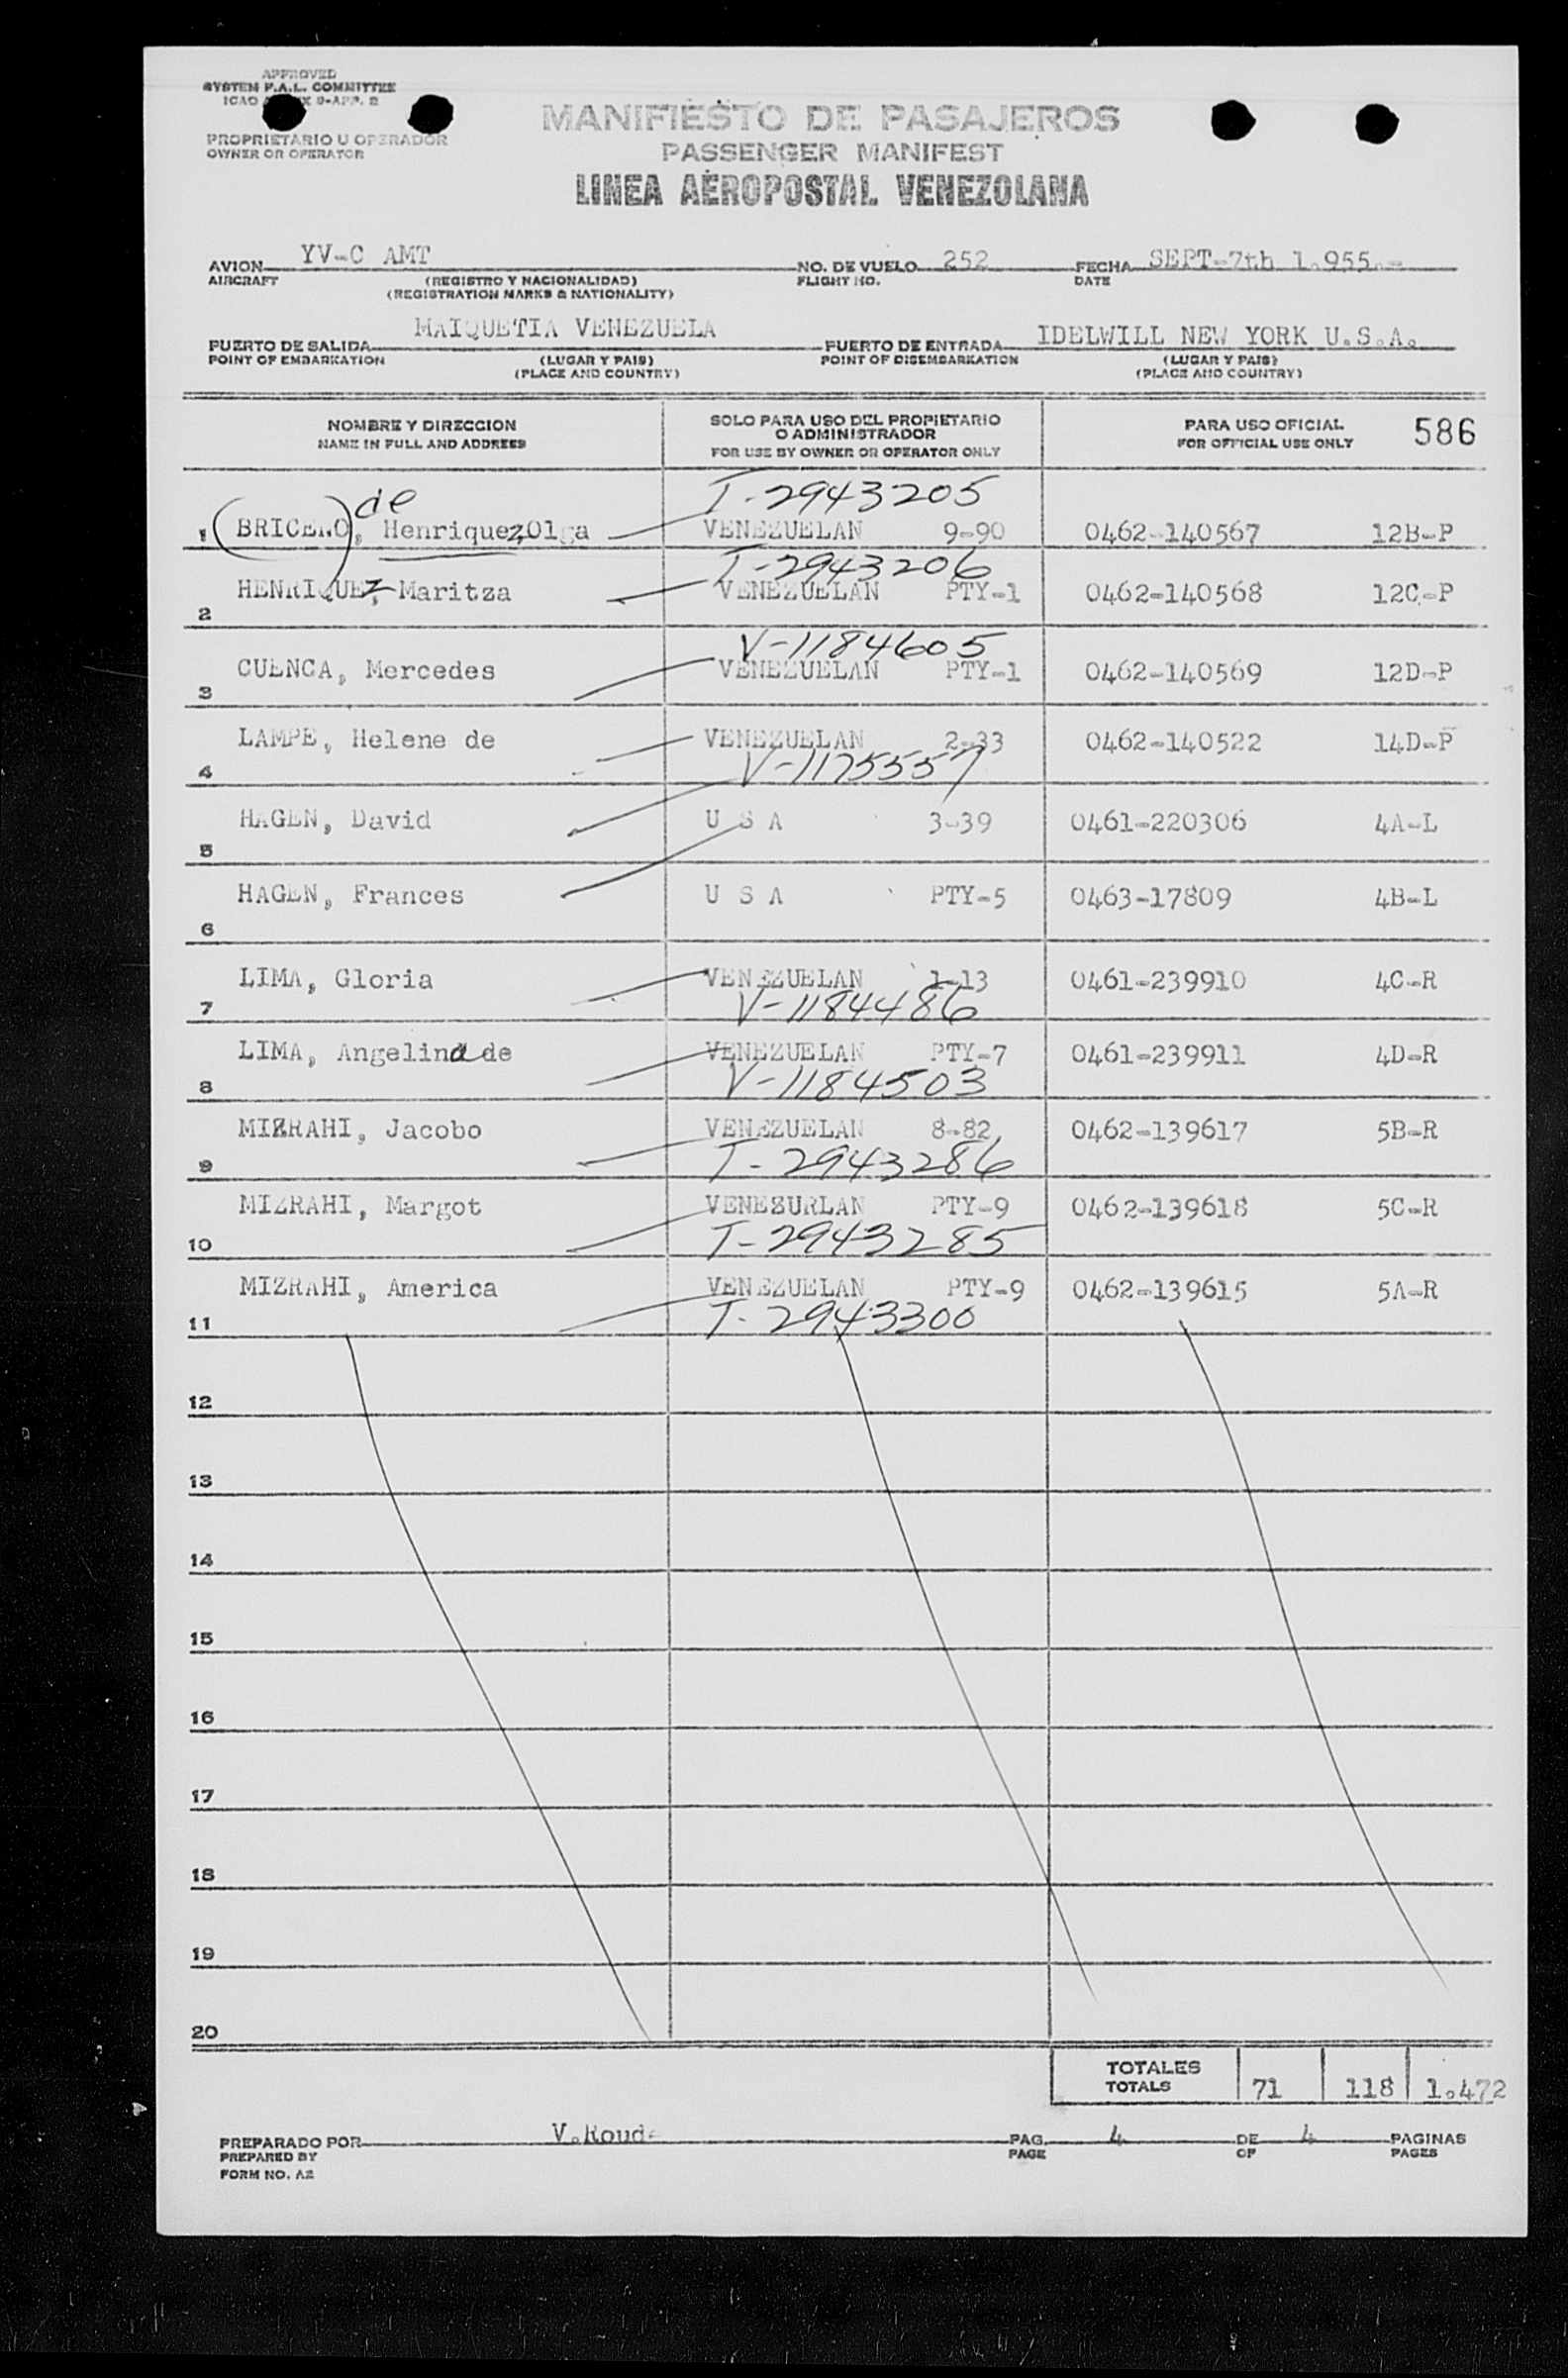 APPROVED
SYSTEM F.A.L. COMMITTEE
ICAO X 9-APP. 2
PROPRIETARIO U OPERADOR
OWNER OR OPERATOR
MANIFIESTO DE PASAJEROS
PASSENGER MANIFEST
LINEA AEROPOSTAL VENEZOLANA
AVION YV-C AMT NO. DE VUELO 252 FECHA SEPT-7th 1.955.-
AIRCRAFT (REGISTRO Y NACIONALIDAD) FLIGHT NO. DATE
(REGISTRATION MARKS & NATIONALITY)
PUERTO DE SALIDA MAIQUETIA VENEZUELA PUERTO DE ENTRADA IDELWILL NEW YORK U.S.A.
POINT OF EMBARKATION (LUGAR Y PAIS) POINT OF DISEMBARKATION (LUGAR Y PAIS)
(PLACE AND COUNTRY) (PLACE AND COUNTRY)
NOMBRE Y DIRECCION
NAME IN FULL AND ADDRESS
SOLO PARA USO DEL PROPIETARIO
O ADMINISTRADOR
FOR USE BY OWNER OR OPERATOR ONLY
PARA USO OFICIAL
FOR OFFICIAL USE ONLY
586
de T-2943205
1 (BRICENO), Henriquez, Olga VENEZUELAN 9-90 0462-140567 12B-P
T-2943206
2 HENRIQUEZ, Maritza VENEZUELAN PTY-1 0462-140568 12C-P
V-1184605
3 CUENCA, Mercedes VENEZUELAN PTY-1 0462-140569 12D-P
4 LAMPE, Helene de VENEZUELAN 2-33 0462-140522 14D-P
V-1175557
5 HAGEN, David U S A 3-39 0461-220306 4A-L
6 HAGEN, Frances U S A PTY-5 0463-17809 4B-L
7 LIMA, Gloria VENEZUELAN 1-13 0461-239910 4C-R
V-1184486
8 LIMA, Angelina de VENEZUELAN PTY-7 0461-239911 4D-R
V-1184503
9 MIZRAHI, Jacobo VENEZUELAN 8-82 0462-139617 5B-R
T-2943286
10 MIZRAHI, Margot VENESURLAN PTY-9 0462-139618 5C-R
T-2943285
11 MIZRAHI, America VENEZUELAN PTY-9 0462-139615 5A-R
T-2943300
12
13
14
15
16
17
18
19
20
TOTALES
TOTALS 71 118 1.472
PREPARADO POR V. PAG. 4 DE 4 PAGINAS
PREPARED BY PAGE OF PAGES
FORM NO. A2